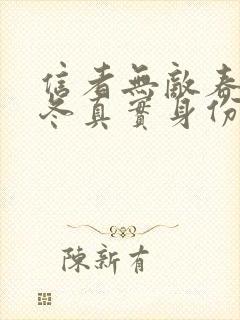 信者無敵春
冬真實身份
陳新有